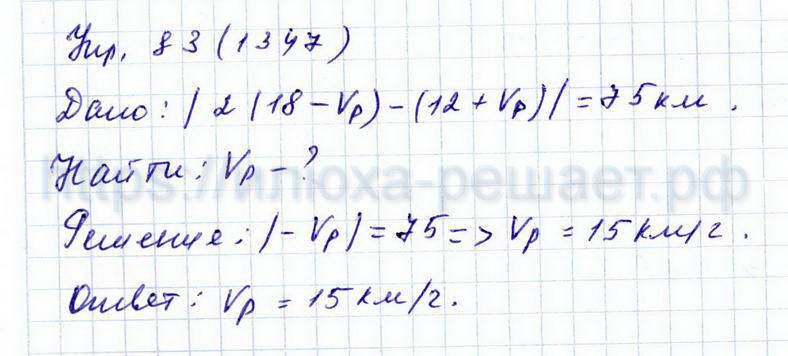 Упр. 83 (1347)
Дано: | 2 (18 - Vр) - (12 + Vр) | = 75 км.
Найти: Vр - ?
https://илюха-решает.рф
Решение: | - Vр | = 75 => Vр = 15 км/г.
Ответ: Vр = 15 км/г.